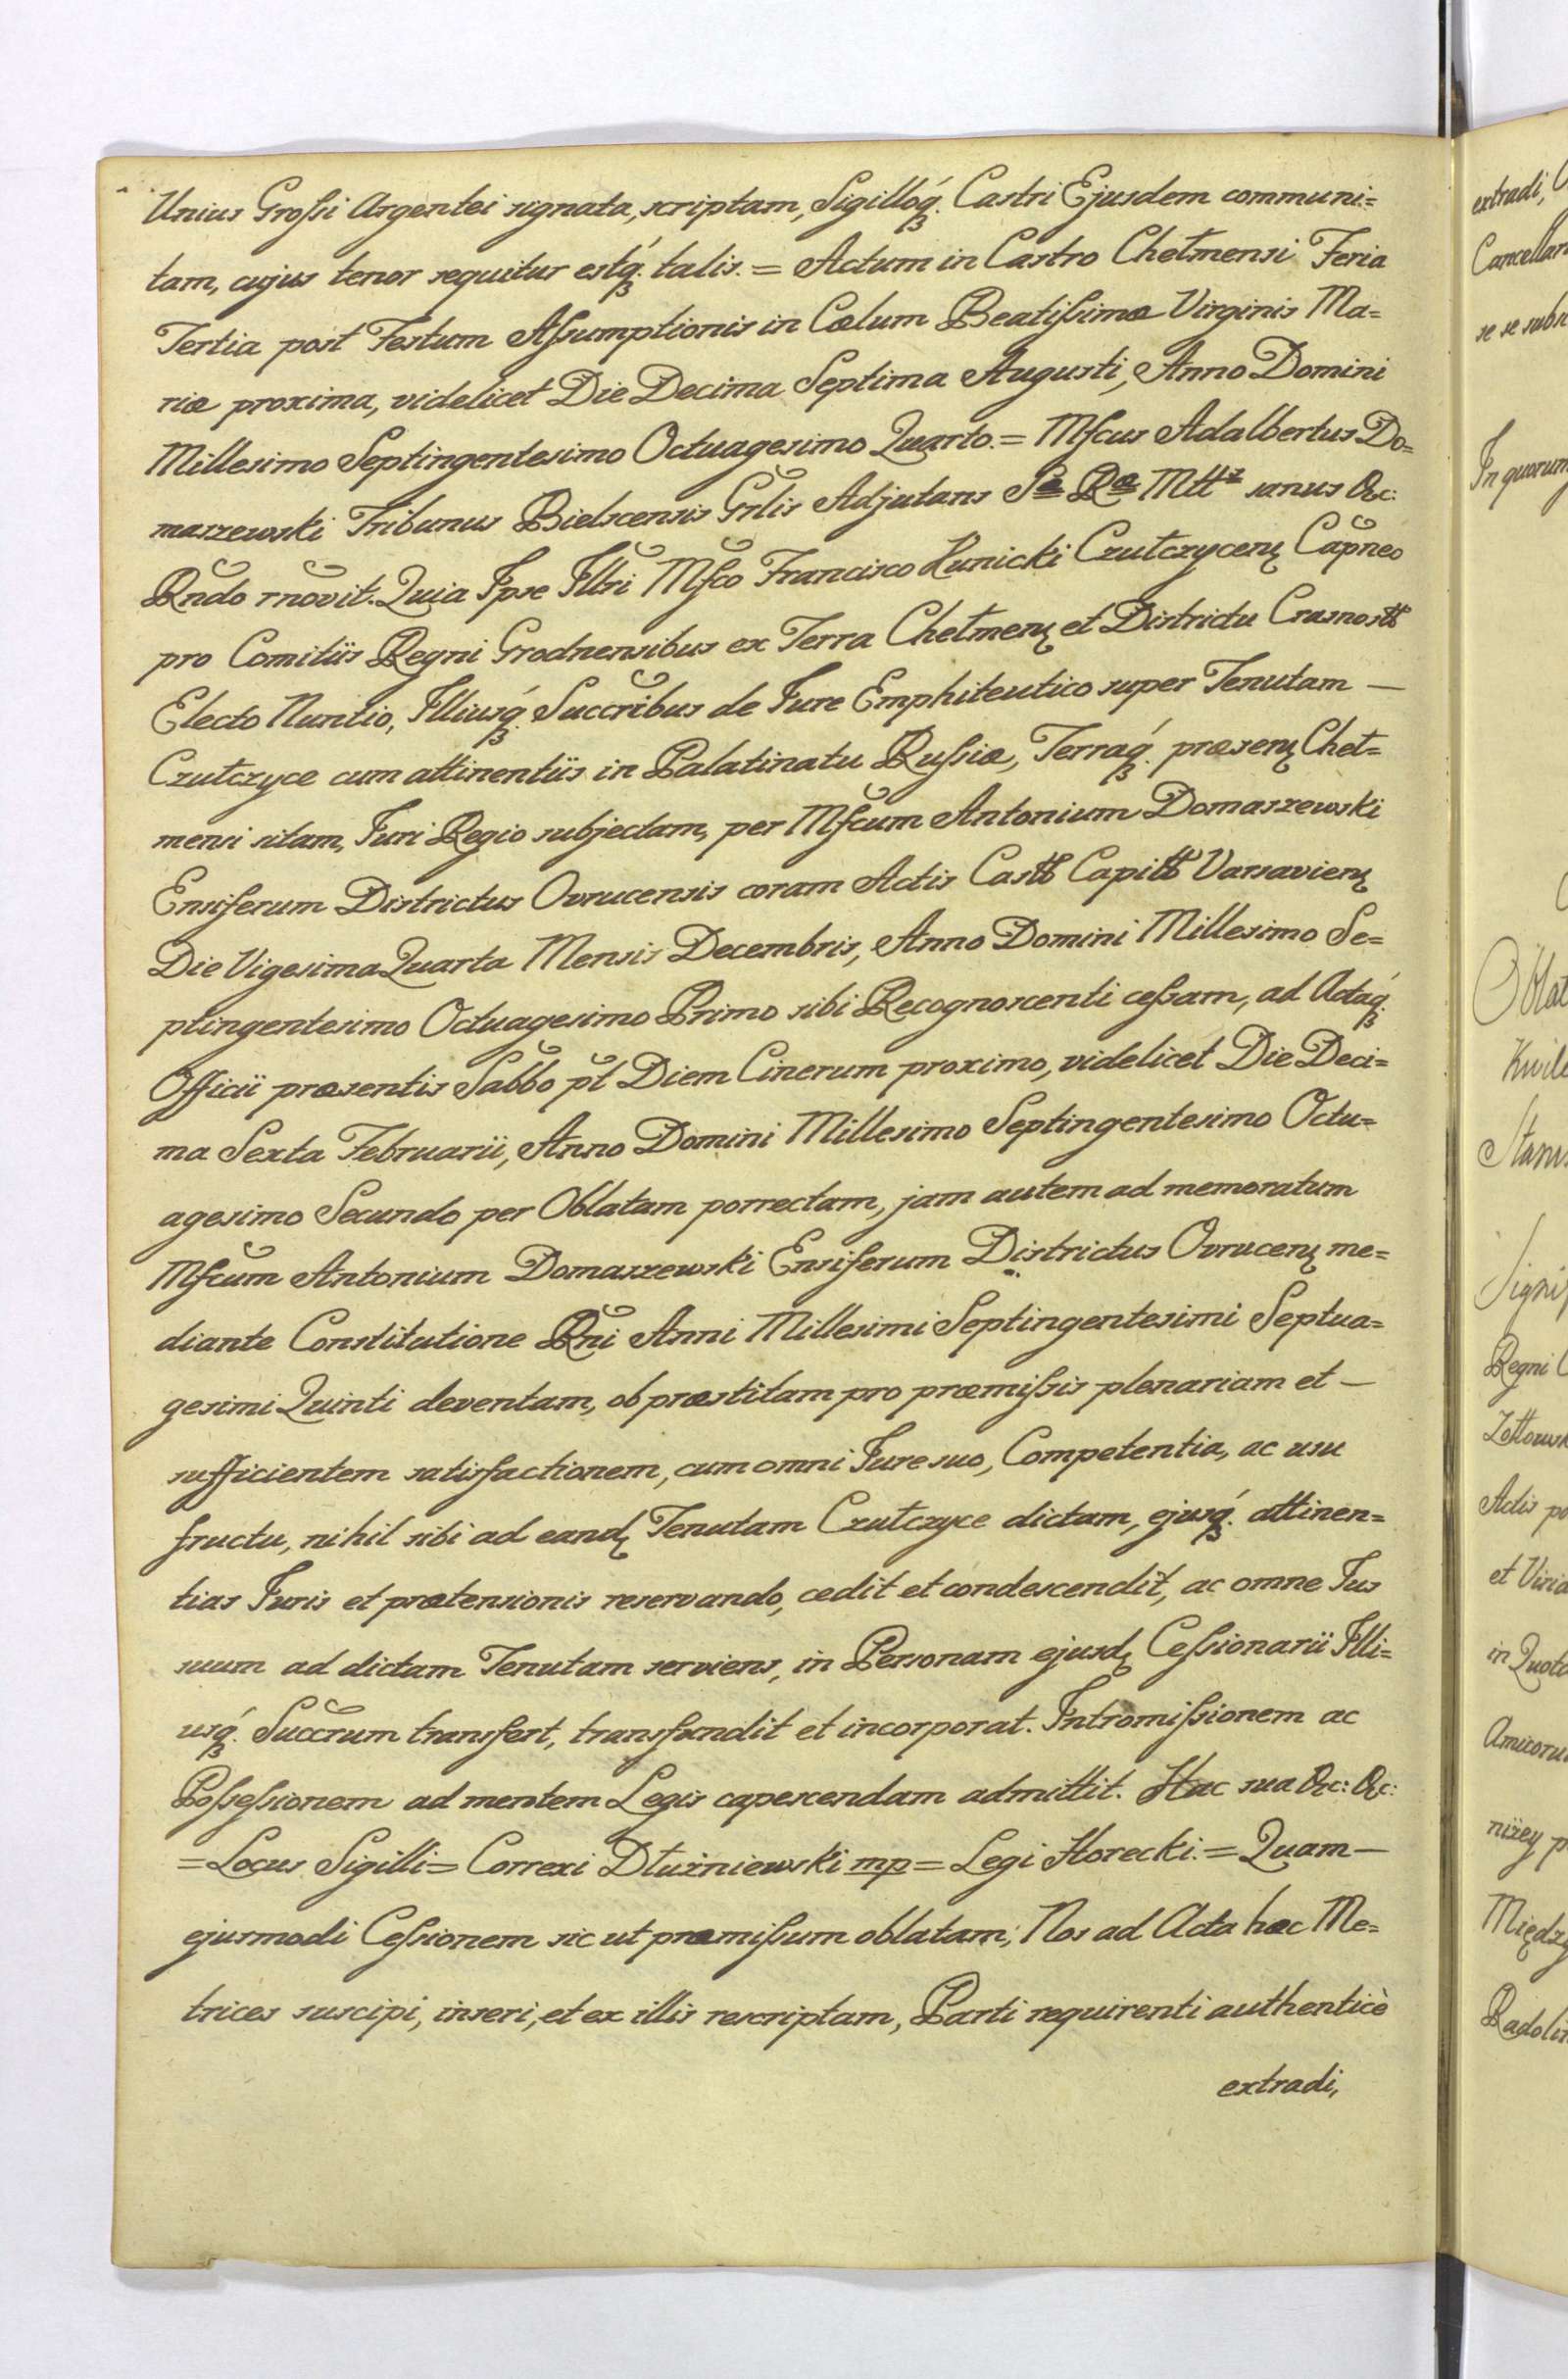 Unius Grossi Argentei signata, scriptam, Sigilloq́3. Castri Ejusdem communi=
tam, cujus tenor sequitur estq́3. talis. = Actum in Castro Chełmensi Feria
Tertia post Festum Assumptionis in Cælum Beatissimæ Virginis Ma=
riæ proxima, videlicet Die Decima Septima Augusti, Anno Domini
Millesimo Septingentesimo Octuagesimo Quarto. = Mfcus Adalbertus Do=
maszewski Tribunus Bielscensis Gnlis Adjutans Sæ Ræ Mttis sanus &c:
Rndo rnovit. Quia Ipse Illri Mfco Francisco Kunicki Czułczycen Capneo
pro Comitiis Regni Grodnensibus ex Terra Chełmen et Districtu Crasnostt
Electo Nuntio, Illiusq́3. Succribus de Jure Emphiteutico super Tenutam —
Czułczyce cum attinentiis in Palatinatu Russiæ, Terraq́3. præsen Cheł=
mensi sitam, Juri Regio subjectam, per Mfcum Antonium Domaszewski
Ensiferum Districtus Ovrucensis coram Actis Castt Capitt Varsavien
Die Vigesima Quarta Mensis Decembris, Anno Domini Millesimo Se=
ptingentesimo Octuagesimo Primo sibi Recognoscenti cessam, ad Actaq́3.
Officii præsentis Sabbo pt Diem Cinerum proximo, videlicet Die Deci=
ma Sexta Februarii, Anno Domini Millesimo Septingentesimo Octu=
agesimo Secundo per Oblatam porrectam, jam autem ad memoratum
Mfcum Antonium Domaszewski Ensiferum Districtus Ovrucen me=
diante Constitutione Rni Anni Millesimi Septingentesimi Septua=
gesimi Quinti deventam, ob præstitam pro præmissis plenariam et —
sufficientem satisfactionem, cum omni Jure suo, Competentia, ac usu
fructu, nihil sibi ad eand Tenutam Czułczyce dictam, ejusq́3. attinen=
tias Juris et prætensionis reservando, cedit et condescendit, ac omne Jus
suum ad dictam Tenutam serviens, in Personam ejusd Cessionarii Illi=
usq́3. Succrum transfert, transfundit et incorporat. Intromissionem ac
Possessionem ad mentem Legis capescendam admittit. Hac sua &c: &c:
= Locus Sigilli = Correxi Dłużniewski mp = Legi Horecki. = Quam —
ejusmodi Cessionem sic ut præmissum oblatam; Nos ad Acta hæc Me=
trices suscipi, inseri, et ex illis rescriptam, Parti requirenti authenticè
extradi,
extradi,
Cancellar
se se subs
In quorum
Oblat
Kwile
Stanis
Signif
Regni
Zołtowsk
Actis po
et Viria
in Quota
Amicoru
niżey p
Między
Radolin